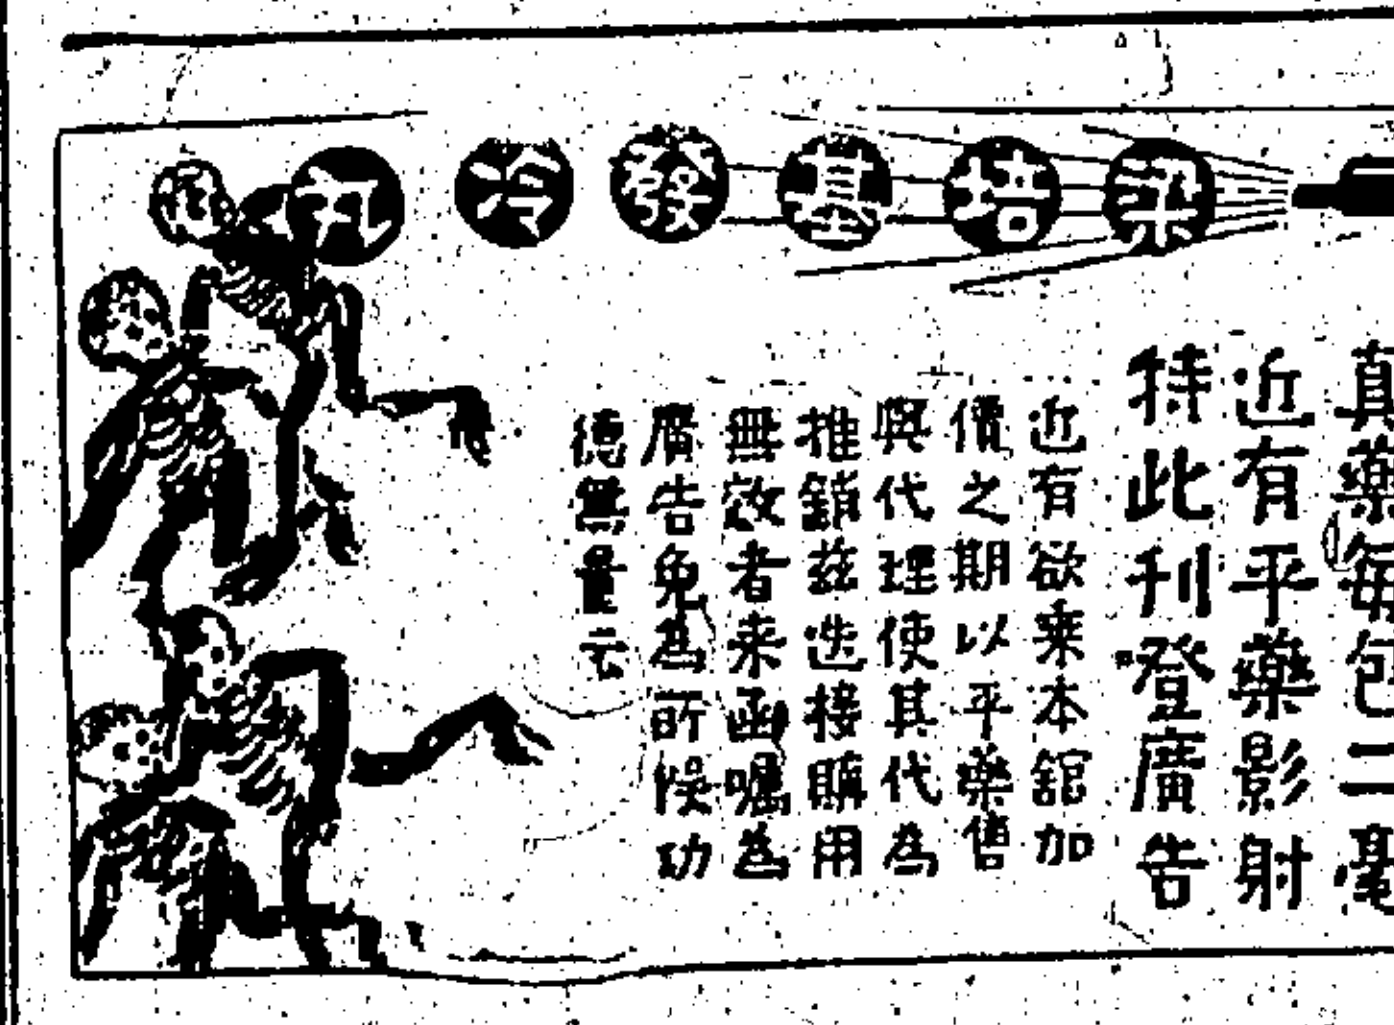 梁培基發冷丸
真藥每包二毫
近有平藥影射
特此刊登廣告
近有欲乘本舘加
價之期以平藥售
與代理使其代為
推銷茲迭接購用
無效者来函囑為
廣告免為所悞功
德無量云